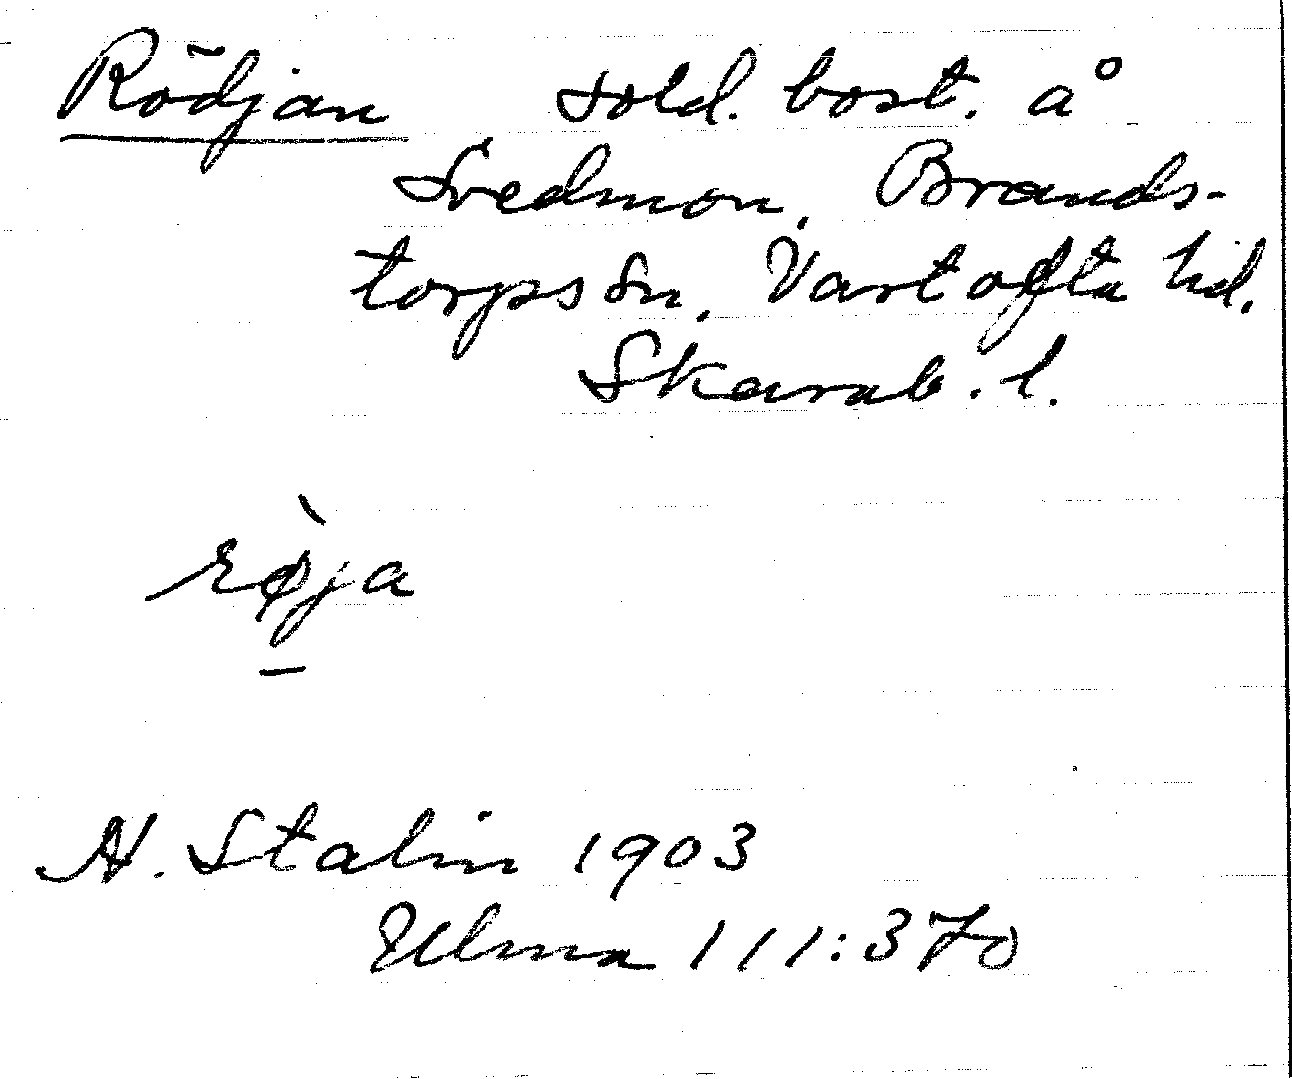 Rödjan sold. bost. å
Svedmon, Brands-
torps sn, Vartofta hd.
Skarab. l.
rø̀ja
N. Stalin 1903
Ulma 111:370